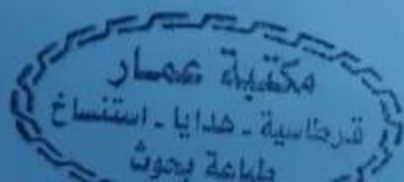 مكتبة عمار
قرطاسية - هدايا - استنساخ
طباعة بحوث